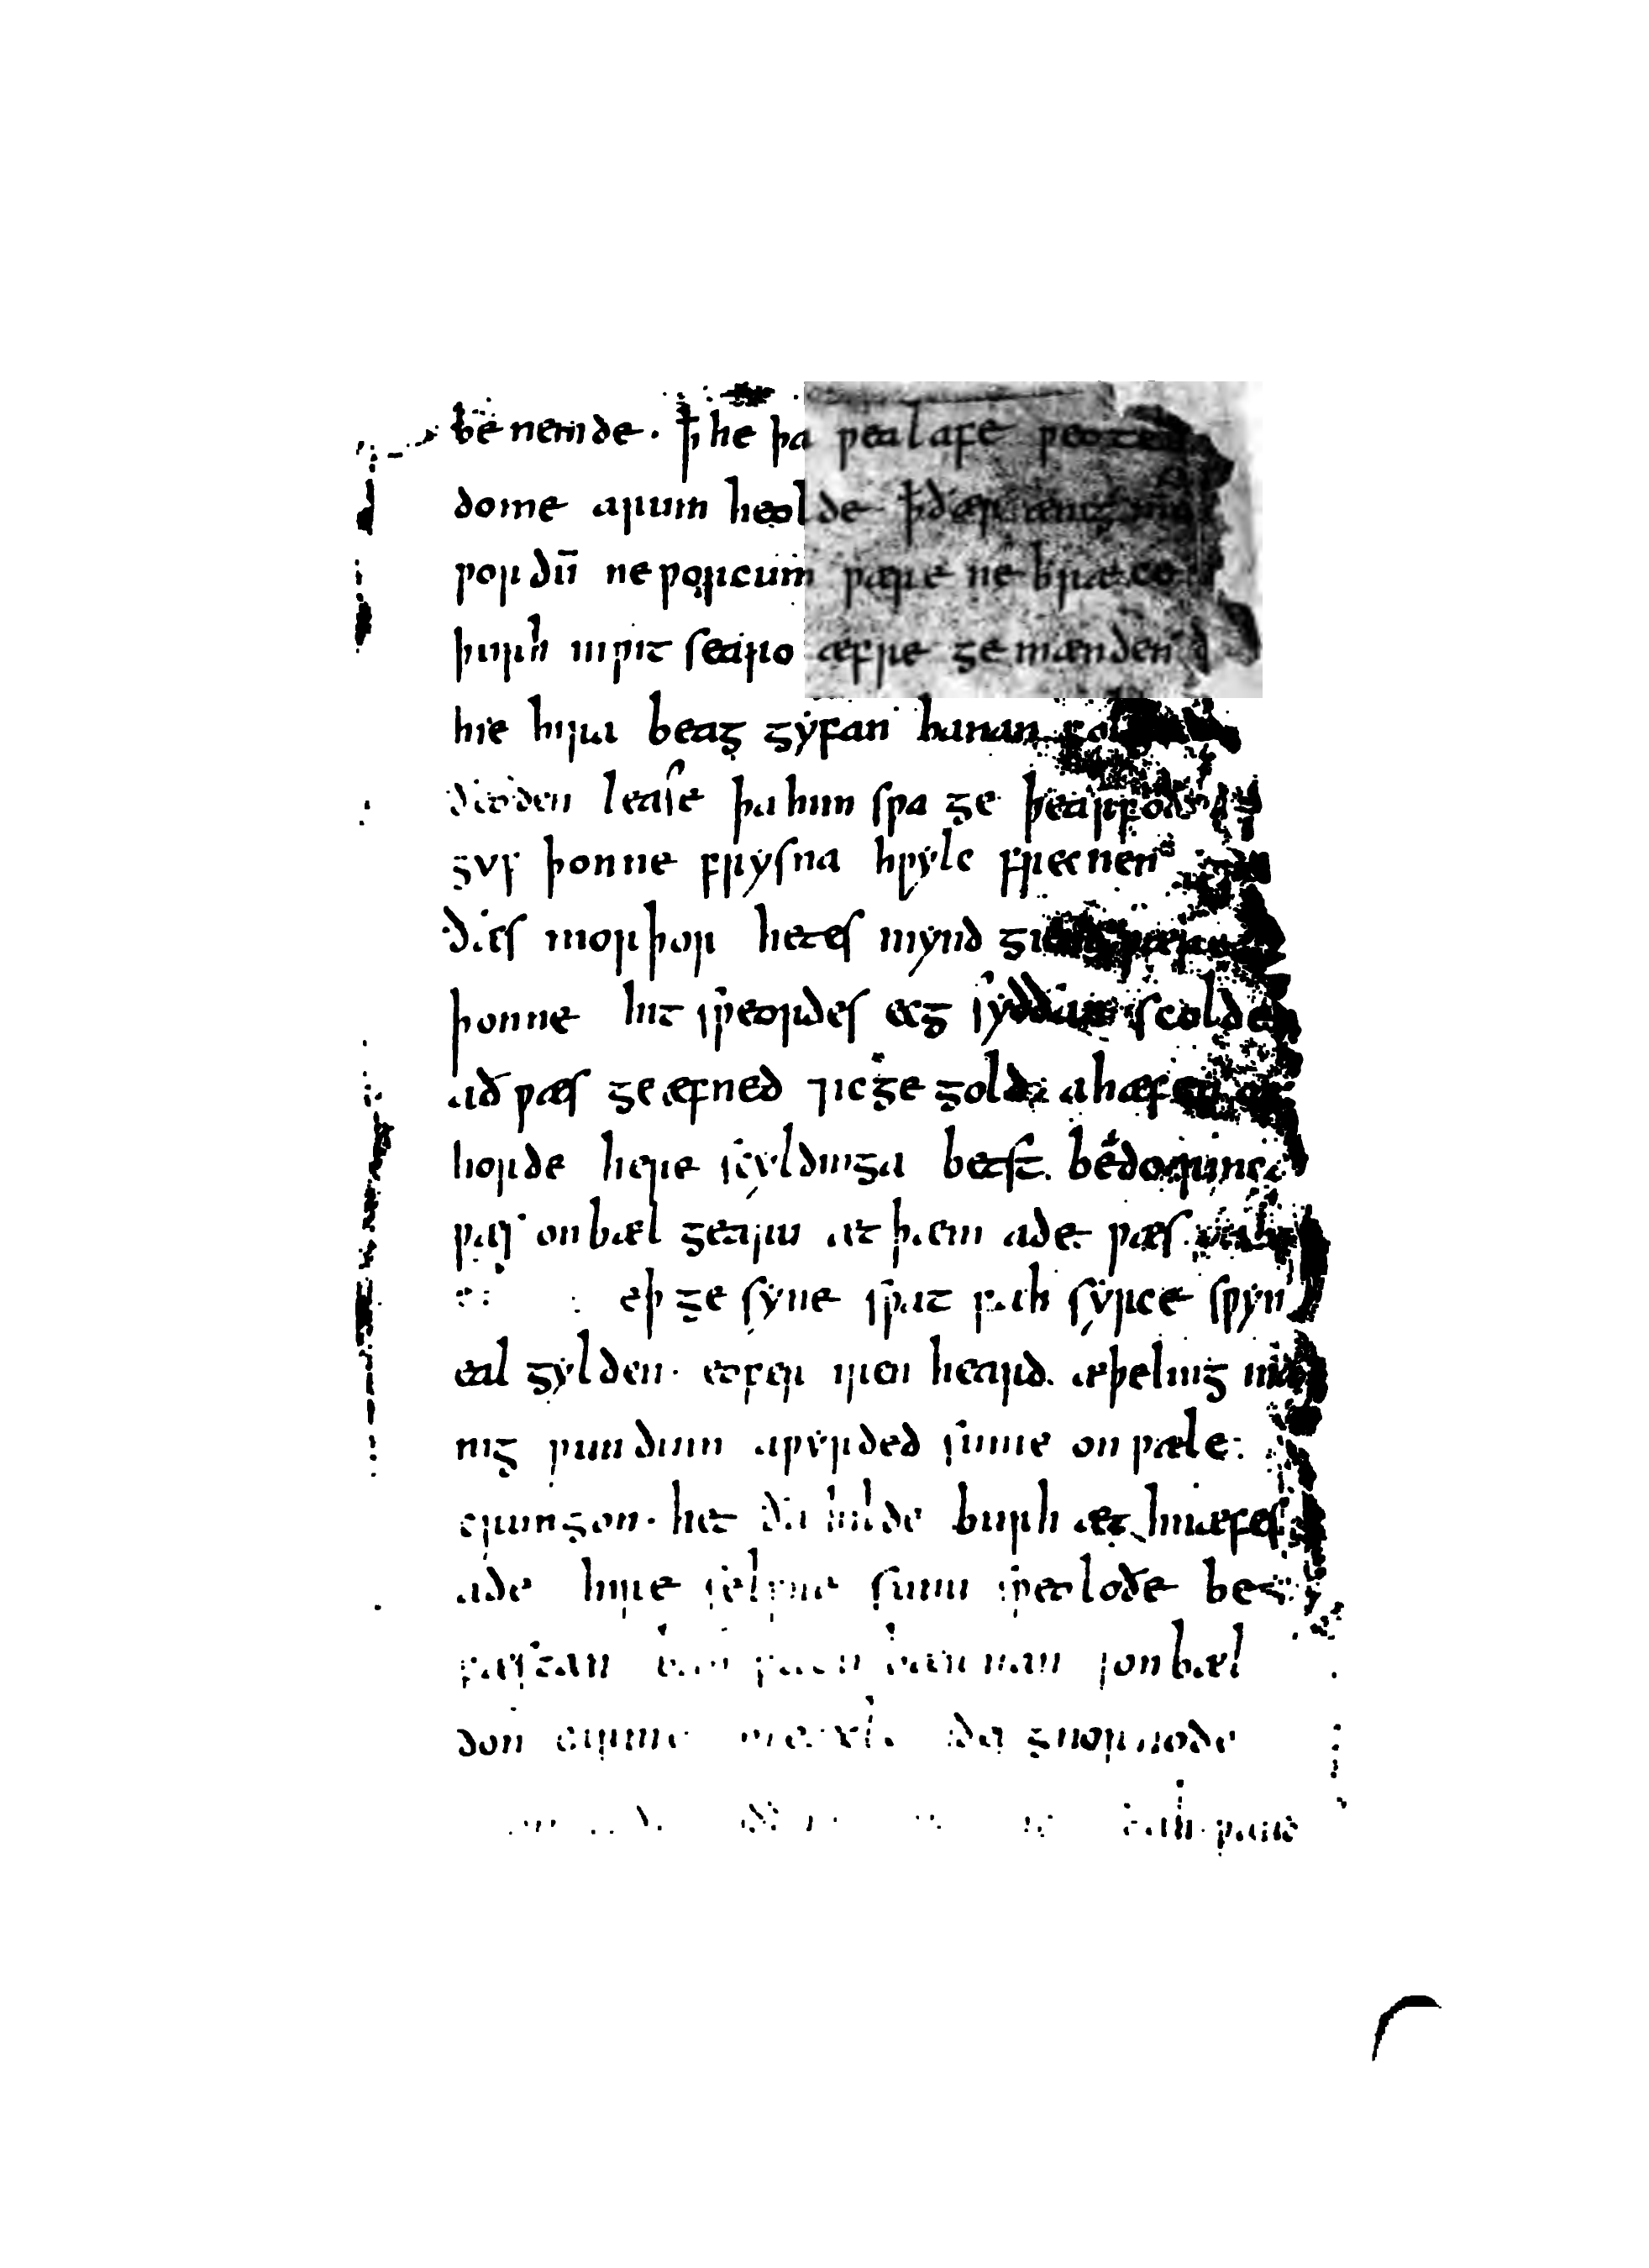 be nemde · ꝥ he þa ƿealafe ƿeoten
dome arum heolde ꝥ ðær ænig mon
ƿordū ne ƿorcum ƿære ne bræce
þurh inƿit searo æfre ge mænden ð
hie hira beag gyfan banan fol
ðeoden lease þa him sƿa ge þearfod
gyf þonne frysna hƿylc frecnen
ðæs morþor hetes mynd gi
þonne hit sƿeordes ecg syððan scolde
að ƿæs ge æfned ⁊ icge gold ahæfen of
horde here scyldinga betst beadorinca
ƿæs on bæl gearu æt þæm ade ƿæs
eþ ge syne sƿat fah syrce sƿyn
eal gylden · eofer iren heard æþeling ma
nig ƿundum aƿyrded sume on ƿæle
crungon · het ða hilde burh æt hnæfes
ade hire selfre sunu sƿeoloðe be
fæstan ban fatu bærnan ⁊ on bæl
don earme on eaxle ides gnornode